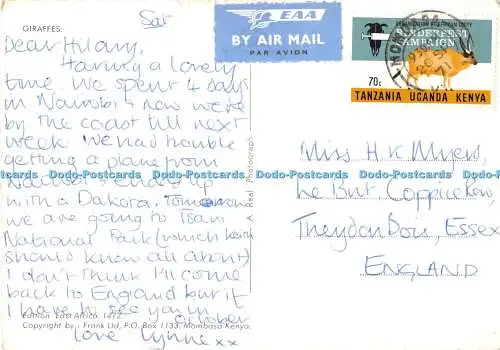 GIRAFFES.
Sat
Dear Hilary,
Having a lovely
time. We spent 4 days
in Nairobi & now we're
by the coast till next
week. We had trouble
getting a plane from
Nairobi & ended up
with a Dakota. Tomorrow
we are going to Tsavo
National Park (which Keith
should know all about)
I don't think I'll come
back to England but if
I have to see you in
October
love Lynne xx
Edition East Africa, 1472.
Copyright by : Frank Ltd, P.O. Box 1133, Mombasa Kenya.
A Real Photograph
EAA
BY AIR MAIL
PAR AVION
RINDERPEST
CAMPAIGN
70c
TANZANIA UGANDA KENYA
Miss H K Myers,
The Bunt, Coppice Row,
Theydon Bois, Essex
ENGLAND
Postcards
www.Todo-Coleccion.com